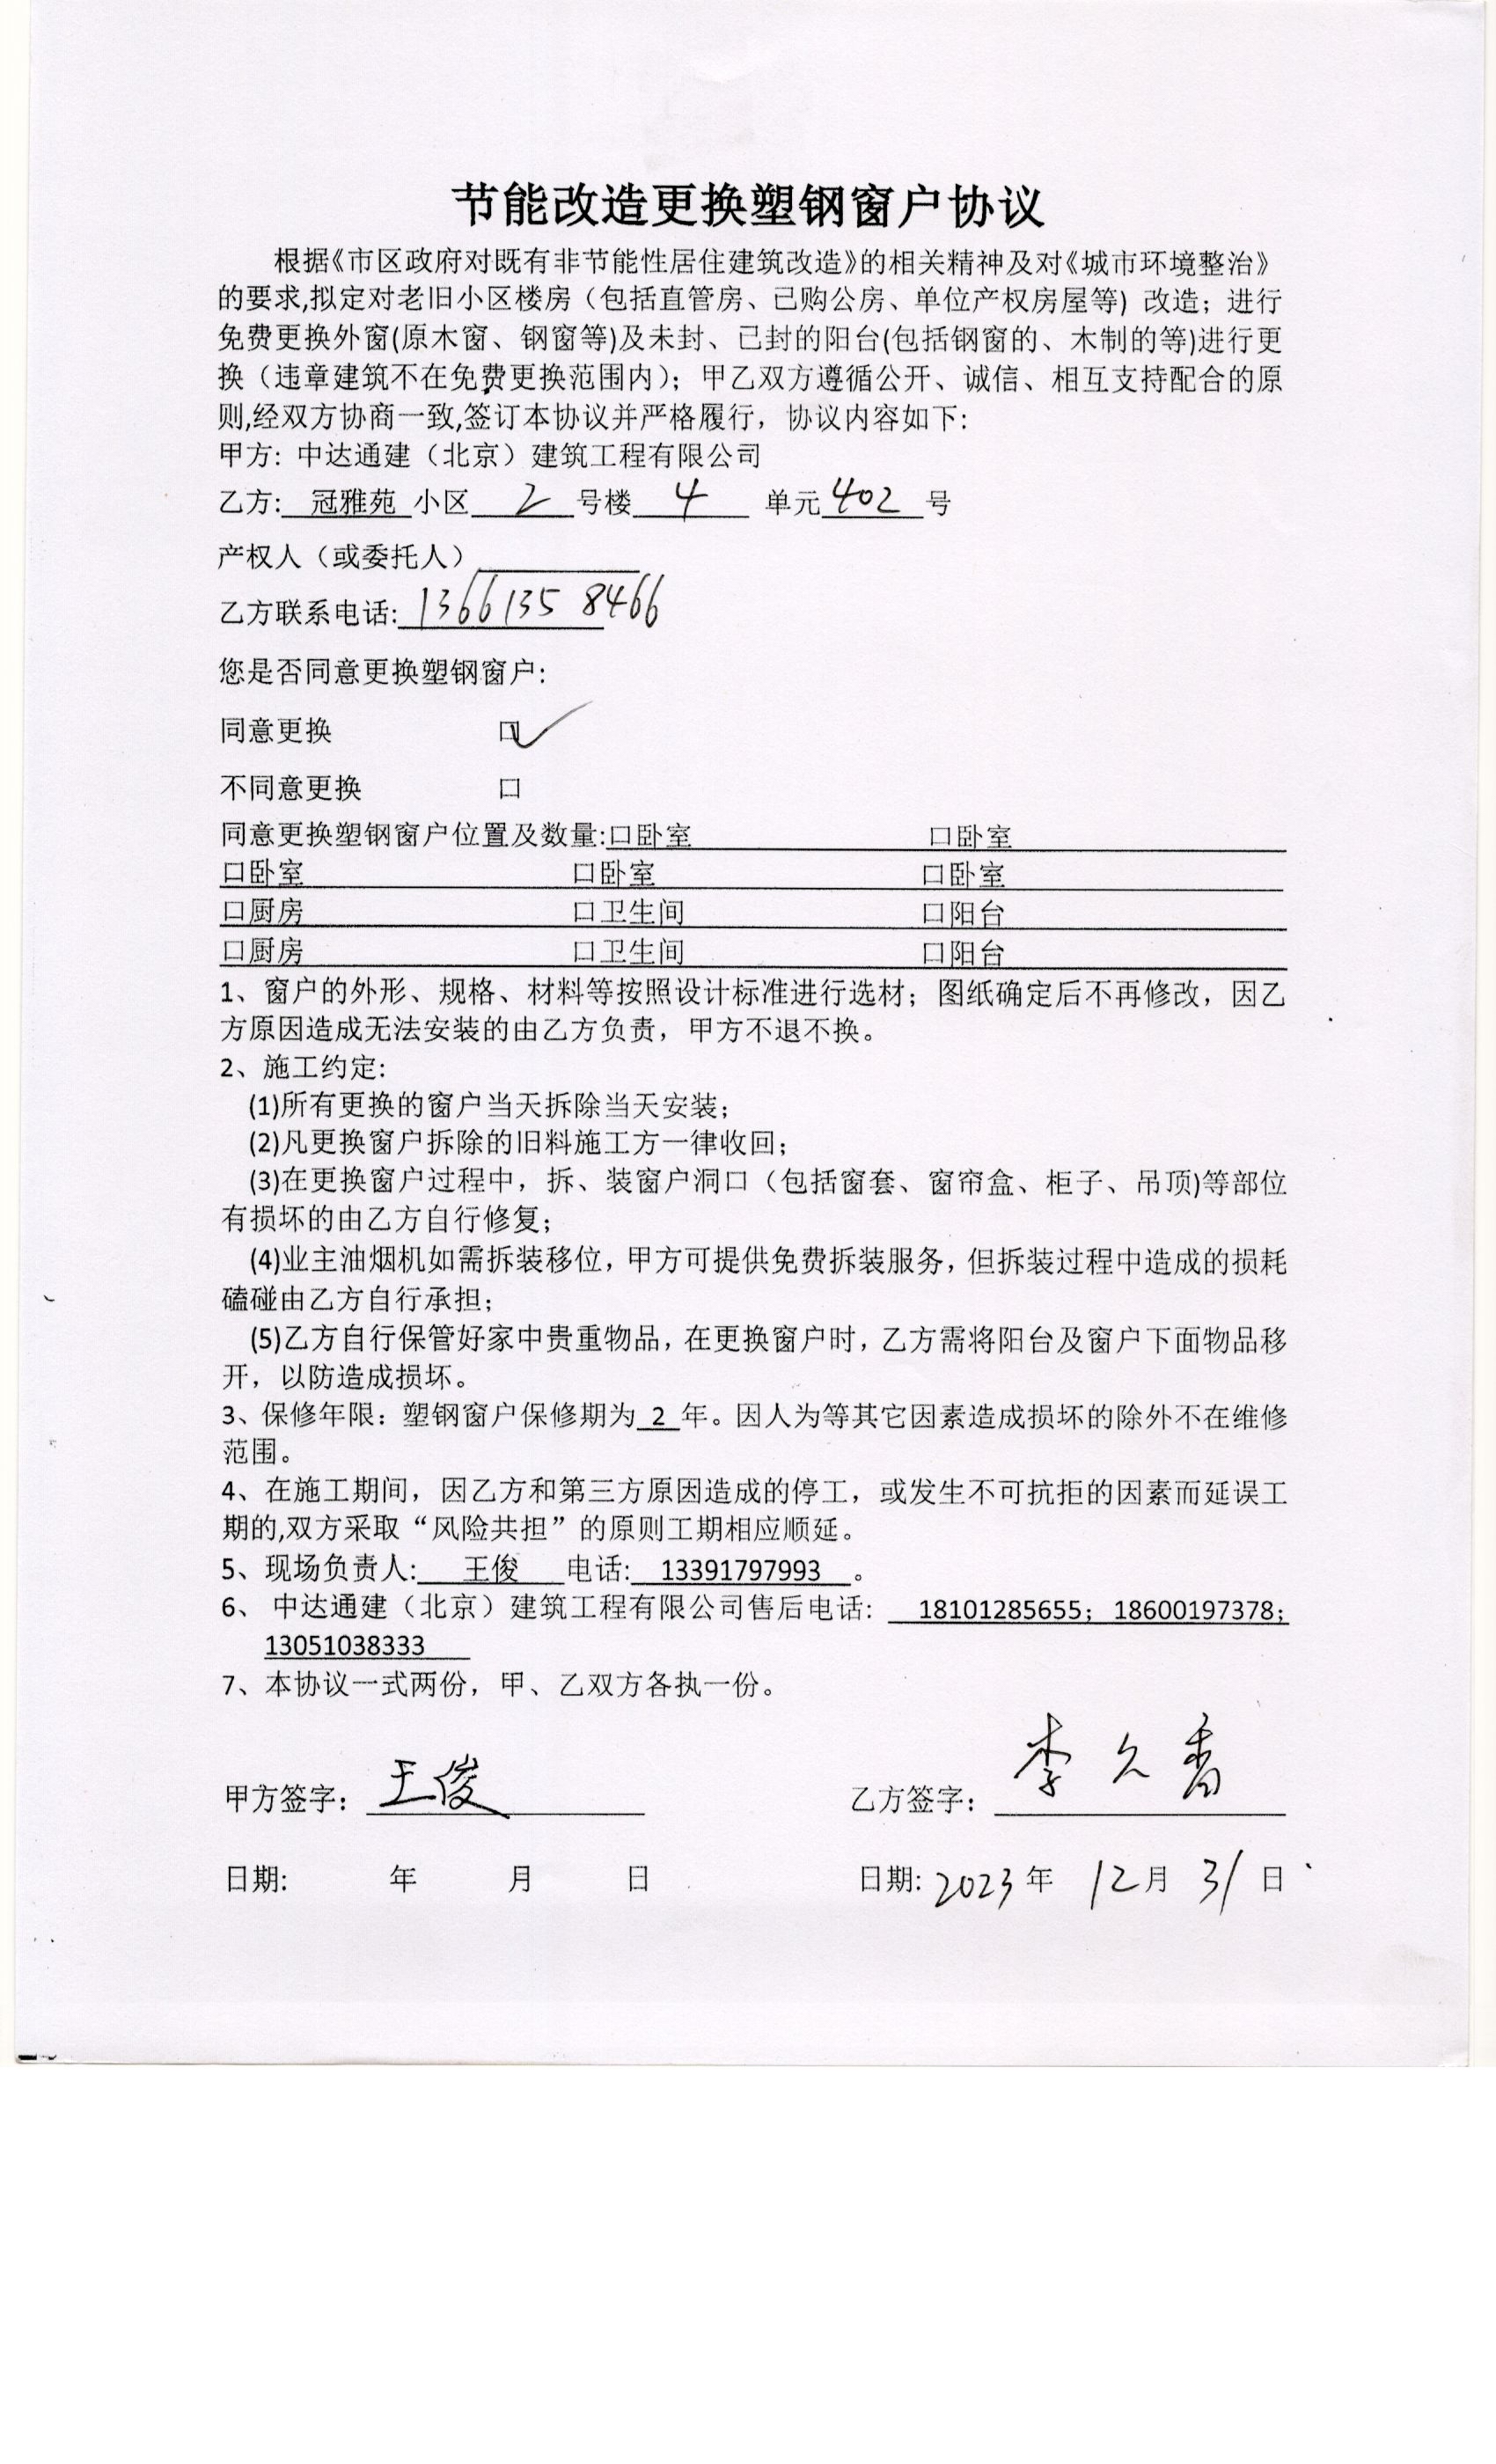 节能改造更换塑钢窗户协议
根据《市区政府对既有非节能性居住建筑改造》的相关精神及对《城市环境整治》
的要求,拟定对老旧小区楼房（包括直管房、己购公房、单位产权房屋等) 改造；进行
免费更换外窗(原木窗、钢窗等)及未封、已封的阳台(包括钢窗的、木制的等)进行更
换（违章建筑不在免费更换范围内）；甲乙双方遵循公开、诚信、相互支持配合的原
则,经双方协商一致,签订本协议并严格履行，协议内容如下:
甲方: 中达通建（北京）建筑工程有限公司
乙方: 冠雅苑 小区 2 号楼 4 单元 402 号
产权人（或委托人）
乙方联系电话: 13661358466
您是否同意更换塑钢窗户:
同意更换 口✓
不同意更换 口
同意更换塑钢窗户位置及数量:口卧室 口卧室
口卧室 口卧室 口卧室
口厨房 口卫生间 口阳台
口厨房 口卫生间 口阳台
1、窗户的外形、规格、材料等按照设计标准进行选材；图纸确定后不再修改，因乙
方原因造成无法安装的由乙方负责，甲方不退不换。
2、施工约定:
(1)所有更换的窗户当天拆除当天安装；
(2)凡更换窗户拆除的旧料施工方一律收回；
(3)在更换窗户过程中，拆、装窗户洞口（包括窗套、窗帘盒、柜子、吊顶)等部位
有损坏的由乙方自行修复；
(4)业主油烟机如需拆装移位，甲方可提供免费拆装服务，但拆装过程中造成的损耗
磕碰由乙方自行承担；
(5)乙方自行保管好家中贵重物品，在更换窗户时，乙方需将阳台及窗户下面物品移
开，以防造成损坏。
3、保修年限：塑钢窗户保修期为 2 年。因人为等其它因素造成损坏的除外不在维修
范围。
4、在施工期间，因乙方和第三方原因造成的停工，或发生不可抗拒的因素而延误工
期的,双方采取“风险共担”的原则工期相应顺延。
5、现场负责人: 王俊 电话: 13391797993 。
6、 中达通建（北京）建筑工程有限公司售后电话: 18101285655；18600197378；
13051038333
7、本协议一式两份，甲、乙双方各执一份。
甲方签字： 王俊 乙方签字： 李久香
日期: 年 月 日 日期: 2023 年 12 月 31 日